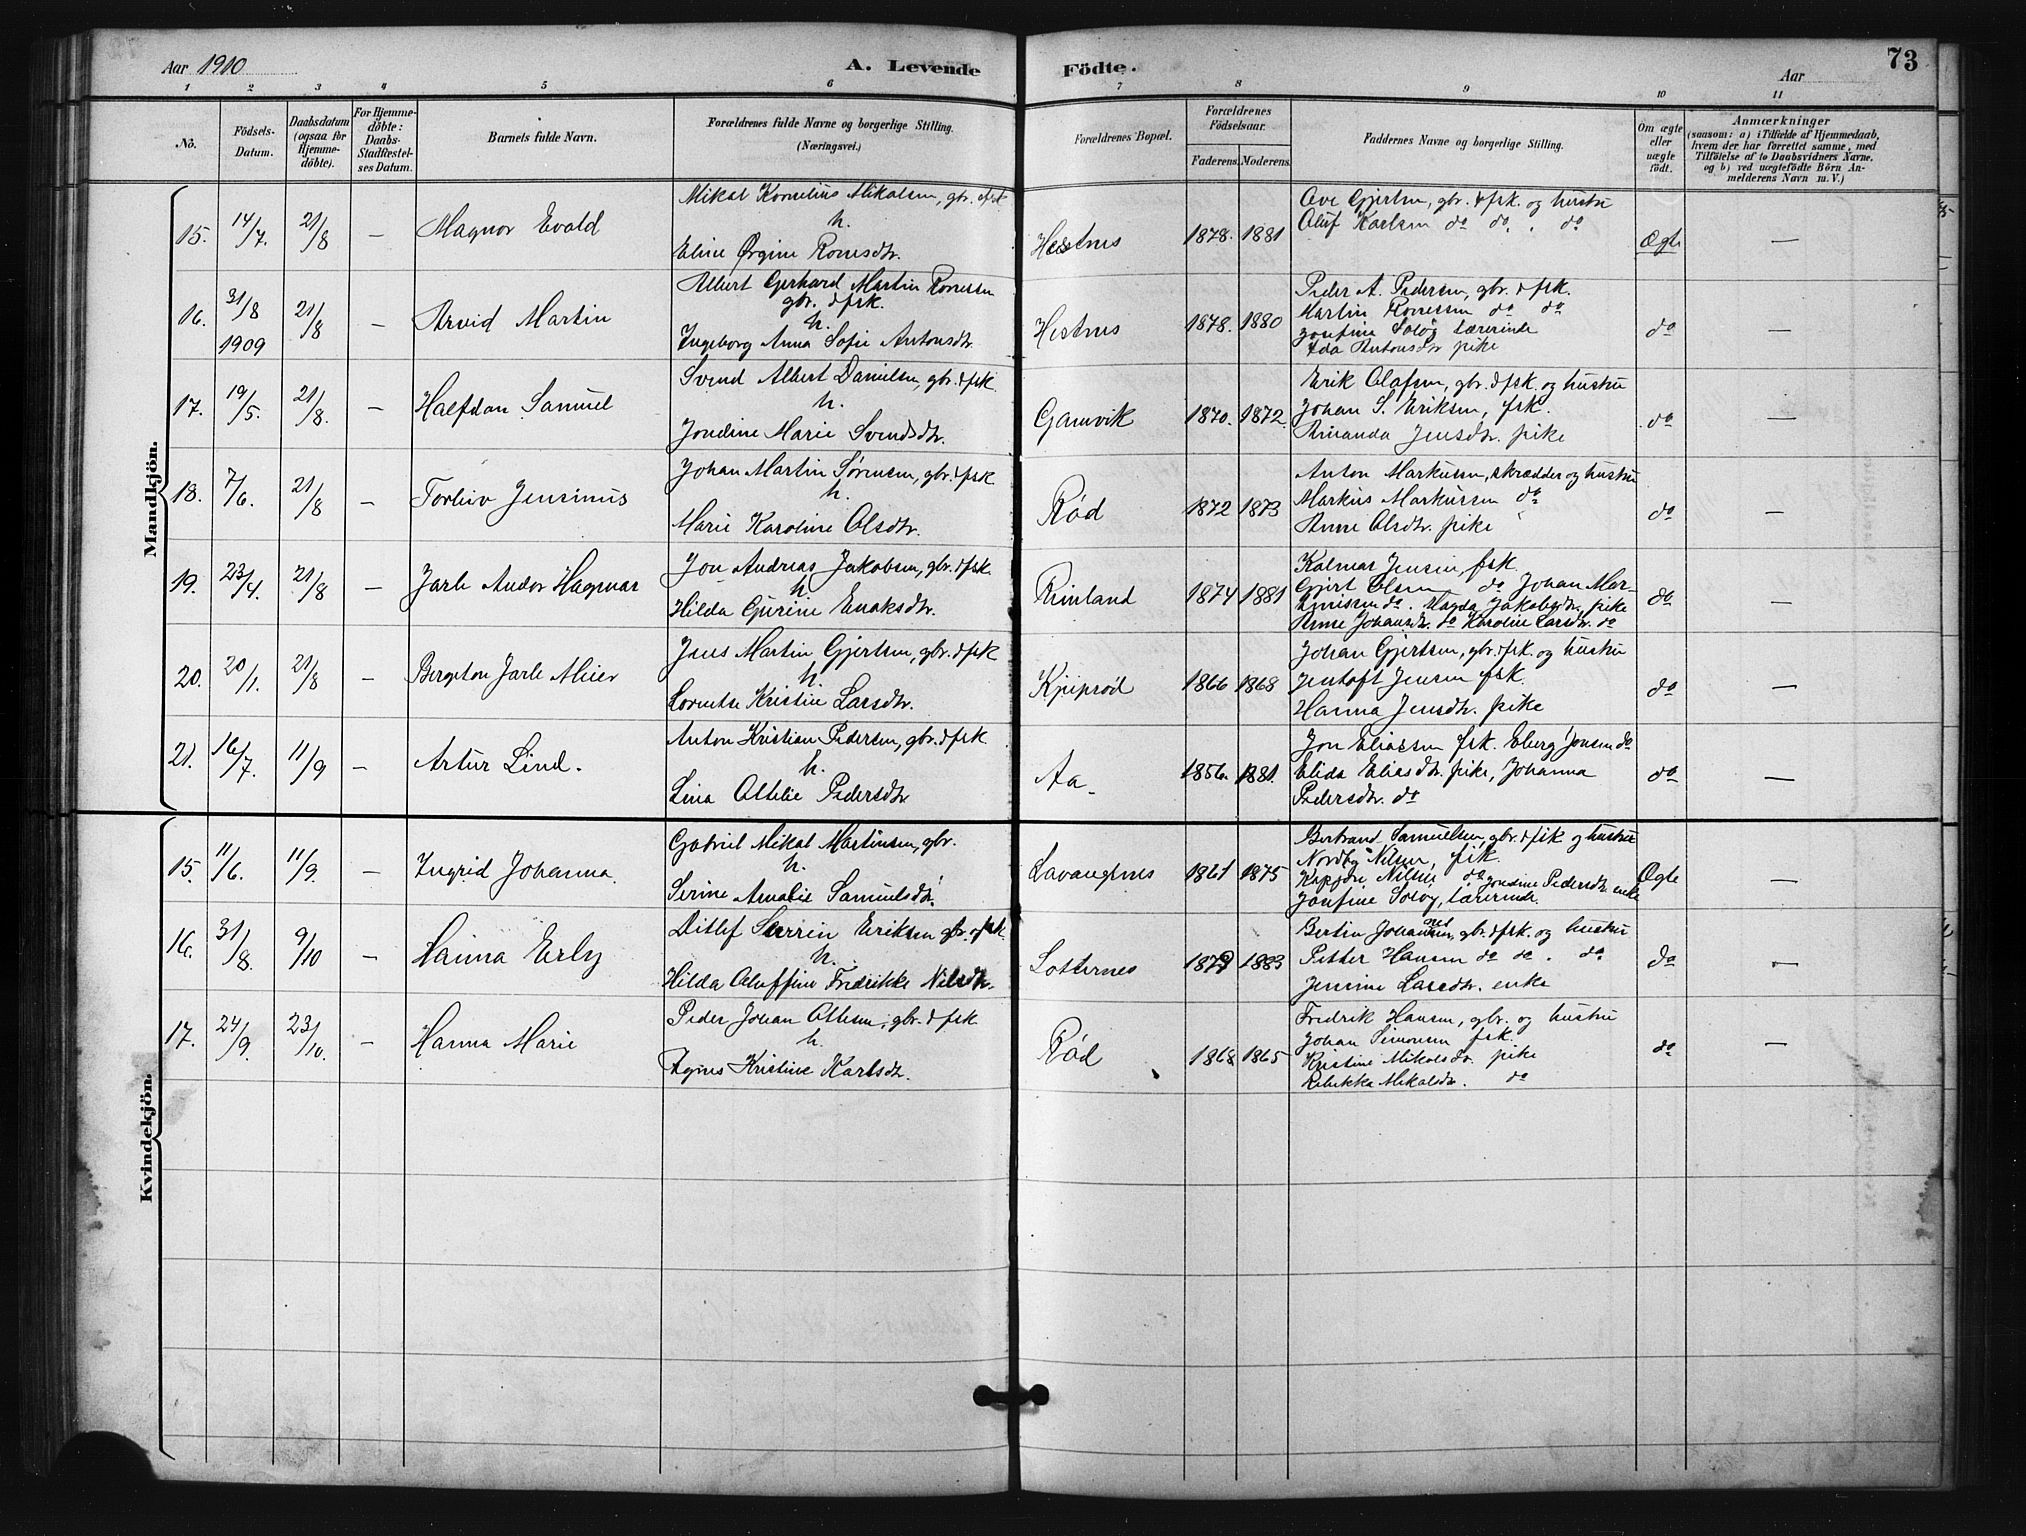 Aar 1910
A. Levende
Födte.
Aar
73
1 2 3 4 5 6 7 8 9 10 11
No.
Födsels-
Datum.
Daabsdatum
(ogsaa for
Hjemme-
döbte).
For Hjemme-
döbte:
Daabs-
Stadfæstel-
ses Datum.
Barnets fulde Navn.
Forældrenes fulde Navne og borgerlige Stilling.
(Næringsvei.)
Forældrenes Bopæl.
Forældrenes
Födselsaar.
Faderens. Moderens.
Faddernes Navne og borgerlige Stilling.
Om ægte
eller
uægte
födt.
Anmærkninger
(saasom: a) i Tilfælde af Hjemmedaab,
hvem der har forrettet samme, med
Tilföielse af to Daabsvidners Navne,
og b) ved uægtefödte Börn An-
melderens Navn m. V.)
Mandkjön.
15. 14/7. 21/8 — Magnor Evald
Mikal Kornelius Mikalsen, gbr. & fsk
h.
Eline Ørgine Ronesdtr.
Hestnes 1878. 1881
Ove Gjertsen, gbr. & fsk. og hustru
Oluf Karlsen do do. . do
Ægte —
16. 31/8 1909 21/8 — Arvid Martin
Albert Gerhard Martin Ronessen
gbr. & fsk.
h.
Ingeborg Anna Sofie Antonsdtr.
Hestnes 1878. 1880
Peder A. Pedersen, gbr. & fsk.
Martin Ronessen do do
Josefine Solöy lærerinde
Ida Antonsdtr. pike
do —
17. 19/5. 21/8. — Halfdan Samuel
Svend Albert Danielsen, gbr. & fsk.
h.
Jondine Marie Svendsdtr.
Gamvik 1870. 1872.
Erik Olafsen, gbr. & fsk. og hustru
Johan S. Eriksen, fsk.
Amanda Jensdtr. pike
do —
18. 7/6. 21/8 — Torleiv Jensinus
Johan Martin Sørensen, gbr. & fsk.
h.
Marie Karoline Olsdtr.
Rød 1872 1873
Anton Markussen, skrædder og hustru
Markus Markussen do
Anne Olsdtr. pike
do —
19. 23/4. 21/8 — Jarle Andor Hagnar
Jon Andreas Jakobsen, gbr. & fsk.
h.
Hilda Gurine Enoksdtr.
Rinland 1874 1881
Kalmar Jensen, fsk.
Gjert Olsen do Johan Mar-
tinussen do. Magda Jakobsdtr. pike
Anne Johansdtr. do Karoline Larsdtr. do
do —
20. 20/1. 21/8 — Bergeton Jarle Meier
Jens Martin Gjertsen, gbr. & fsk
h.
Lorentse Kristine Larsdtr.
Kjeiprød 1866 1868
Johan Gjertsen, gbr. & fsk. og hustru
Jentoft Jensen fsk.
Hanna Jensdtr. pike
do —
21. 16/7. 11/9 — Artur Lind.
Anton Kristian Pedersen, gbr. & fsk.
h.
Lina Ottelie Pedersdtr.
Aa 1856. 1881.
Jon Eliassen fsk. Eberg Jonsen do
Elida Eliasdtr. pike, Johanna
Pedersdtr. do
do —
Kvindekjön.
15. 11/6. 11/9. — Ingrid Johanna.
Gabriel Mikal Martinsen, gbr.
h.
Serine Amalie Samuelsdtr.
Lavangsnes 1861 1875
Bertrand Samuelsen, gbr. & fsk og hustru
Nordby Nilsen, fsk.
Nilsen do Jondine Pedersdtr. enke
Josefine Solöy, lærerinde.
Ægte —
16. 31/8. 9/10 — Hanna Erly
Ditlef Severin Eriksen gbr. & fsk.
h.
Hilda Oluffine Fredrikke Nilsdtr.
Lotternes 1879 1883
Bertin Johansen, gbr. & fsk. og hustru
Petter Hansen do do. do
Jensine Larsdtr. enke
do —
17. 24/9. 23/10. — Hanna Marie
Peder Johan Ottesen, gbr. & fsk.
h.
Agnes Kristine Karlsdtr.
Rød 1868 1865
Fredrik Hansen, gbr. og hustru
Johan Simonsen fsk.
Kristine Mikalsdtr. pike
Rebekka Mikalsdtr. do
do —